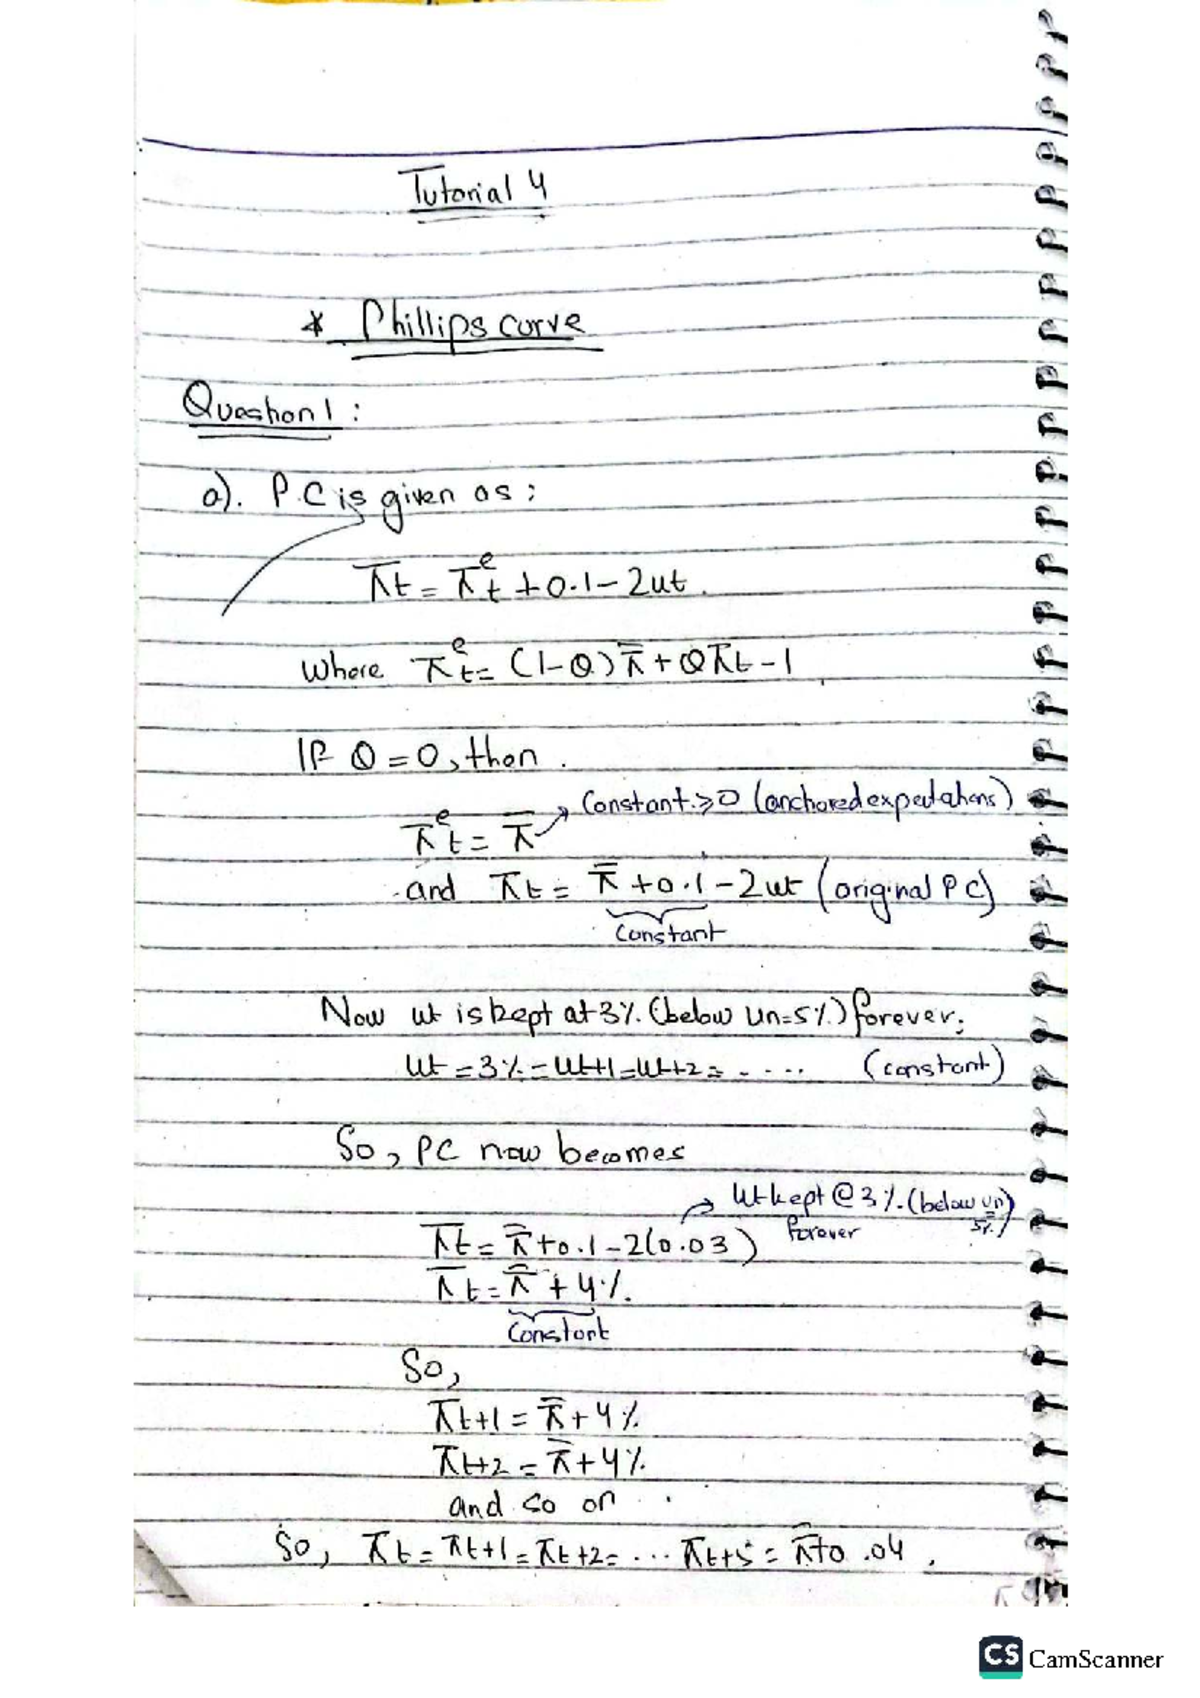 Tutorial 4
* Phillips curve
Question 1:
a). P.C is given as:
πt = π^e t + 0.1 - 2ut.
Where π^e t = (1-θ) π̄ + θπt-1
If θ = 0, then.
Constant ≥ 0 (anchored expectations)
π^e t = π̄
and πt = π̄ + 0.1 - 2ut (original PC)
Constant
Now ut is kept at 3%. (below un=5%) forever;
ut = 3% = ut+1 = ut+2 = ..... (constant)
So, PC now becomes
ut kept @ 3%. (below un)
πt = π̄ + 0.1 - 2(0.03) forever 5%
πt = π̄ + 4%.
Constant
So,
πt+1 = π̄ + 4%
πt+2 = π̄ + 4%
and so on ..
So, πt = πt+1 = πt+2 = ... πt+5 = π̄ + 0.04.
CS CamScanner